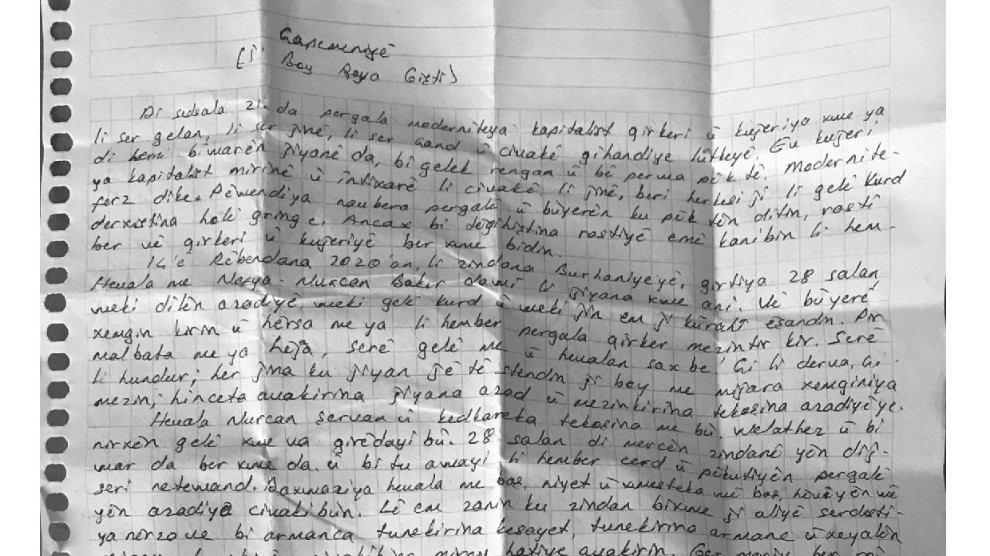 (Ji Çapemeniyê
Boy Raya Giştî)
Di sedsala 21. da pergala modernîteya kapîtalîst qirkerî û kujeriya xwe ya
li ser gelan, li ser jinê, li ser û civakê gihandiye lûtkeyê. Ew kujerî
di hemî biwarên jiyanê da, bi gelek rengan û bê perwa pêk tê. Modernîte-
ya kapîtalîst mirinê û întîxarê li civakê li jinê, berî herkesî jî li gelê Kurd
ferz dike. Pêwendiya navbera pergalê û bûyerên ku pêk tên dîtin, rastî
derxistina holê girînge. Ancax bi têgihiştina rastiyê emê kanibin li hem-
ber vê qirkerî û kujeriyê ber xwe bidin.
14'ê Rêbendana 2020'an, li zindana Burhaniyeyê, girtiya 28 salan
Hevala me Nurcan Bakir dawî li jiyana xwe anî. Vê bûyerê
wekî dilên azadiyê, wekî gelê kurd û wekî jin em jî kûrahî êşandin. Pir
xemgîn kirin û hêrsa me ya li hember pergala qirker mezintir kir. Serê
malbata me ya hêja, serê gelê me û hevalan sax be. Çi li derva, çi
li hundur; her jina ku jiyan jê tê standin ji boy me mijara xemgîniya
mezin, hinceta avakirina jiyana azad û mezinkirina têkoşîna azadiyê ye.
Hevala Nurcan şervan û kedkareka têkoşîna me bû. Welathez û bi
nirxên gelê xwe va girêdayî bû. 28 salan di mercên zindanê yên dij-
war da ber xwe da û bi tu awayî li hember cerd û pêkutiyên pergalê
serî netewand. Daxwaziya hevala me baş, niyet û xwesteka wê baş, hêviyên wê
yên azadiya civakî bûn. Lê em zanin ku zindan bixwe ji aliyê serdestî-
ya nêrzo ve bi armanca tunekirina kesayet, tunekirina armanc û xeyalên
mirov hatiye avakirin. Ger